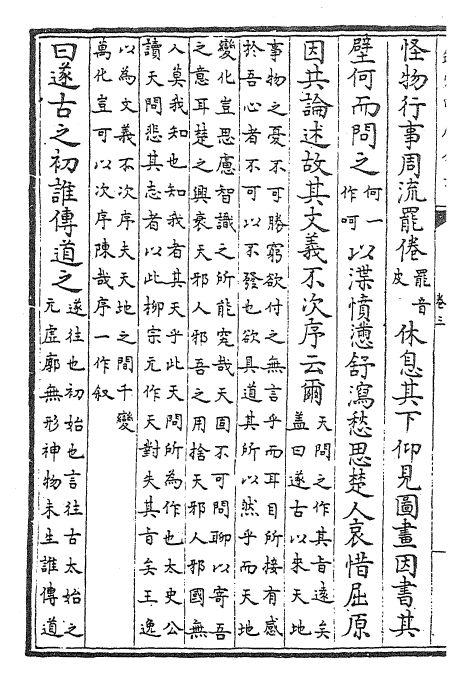 怪物行事周流罷倦
罷音
皮
休息其下仰見圖畫因書其
壁何而問之
何一
作呵
以渫憤懣舒瀉愁思楚人哀惜屈原
因共論述故其文義不次序云爾
天問之作其旨遠矣
蓋曰遂古以來天地
事物之憂不可勝窮欲付之無言乎而耳目所接有感
於吾心者不可以不發也欲具道其所以然乎而天地
變化豈思慮智識之所能究哉天固不可問聊以寄吾
之意耳楚之興衰天邪人邪吾之用捨天邪人邪國無
人莫我知也知我者其天乎此天問所為作也太史公
讀天問悲其志者以此柳宗元作天對失其旨矣王逸
以為文義不次序夫天地之間千變
萬化豈可以次序陳哉序一作叙
曰遂古之初誰傳道之
遂往也初始也言往古太始之
元虛廓無形神物未生誰傳道
卷三